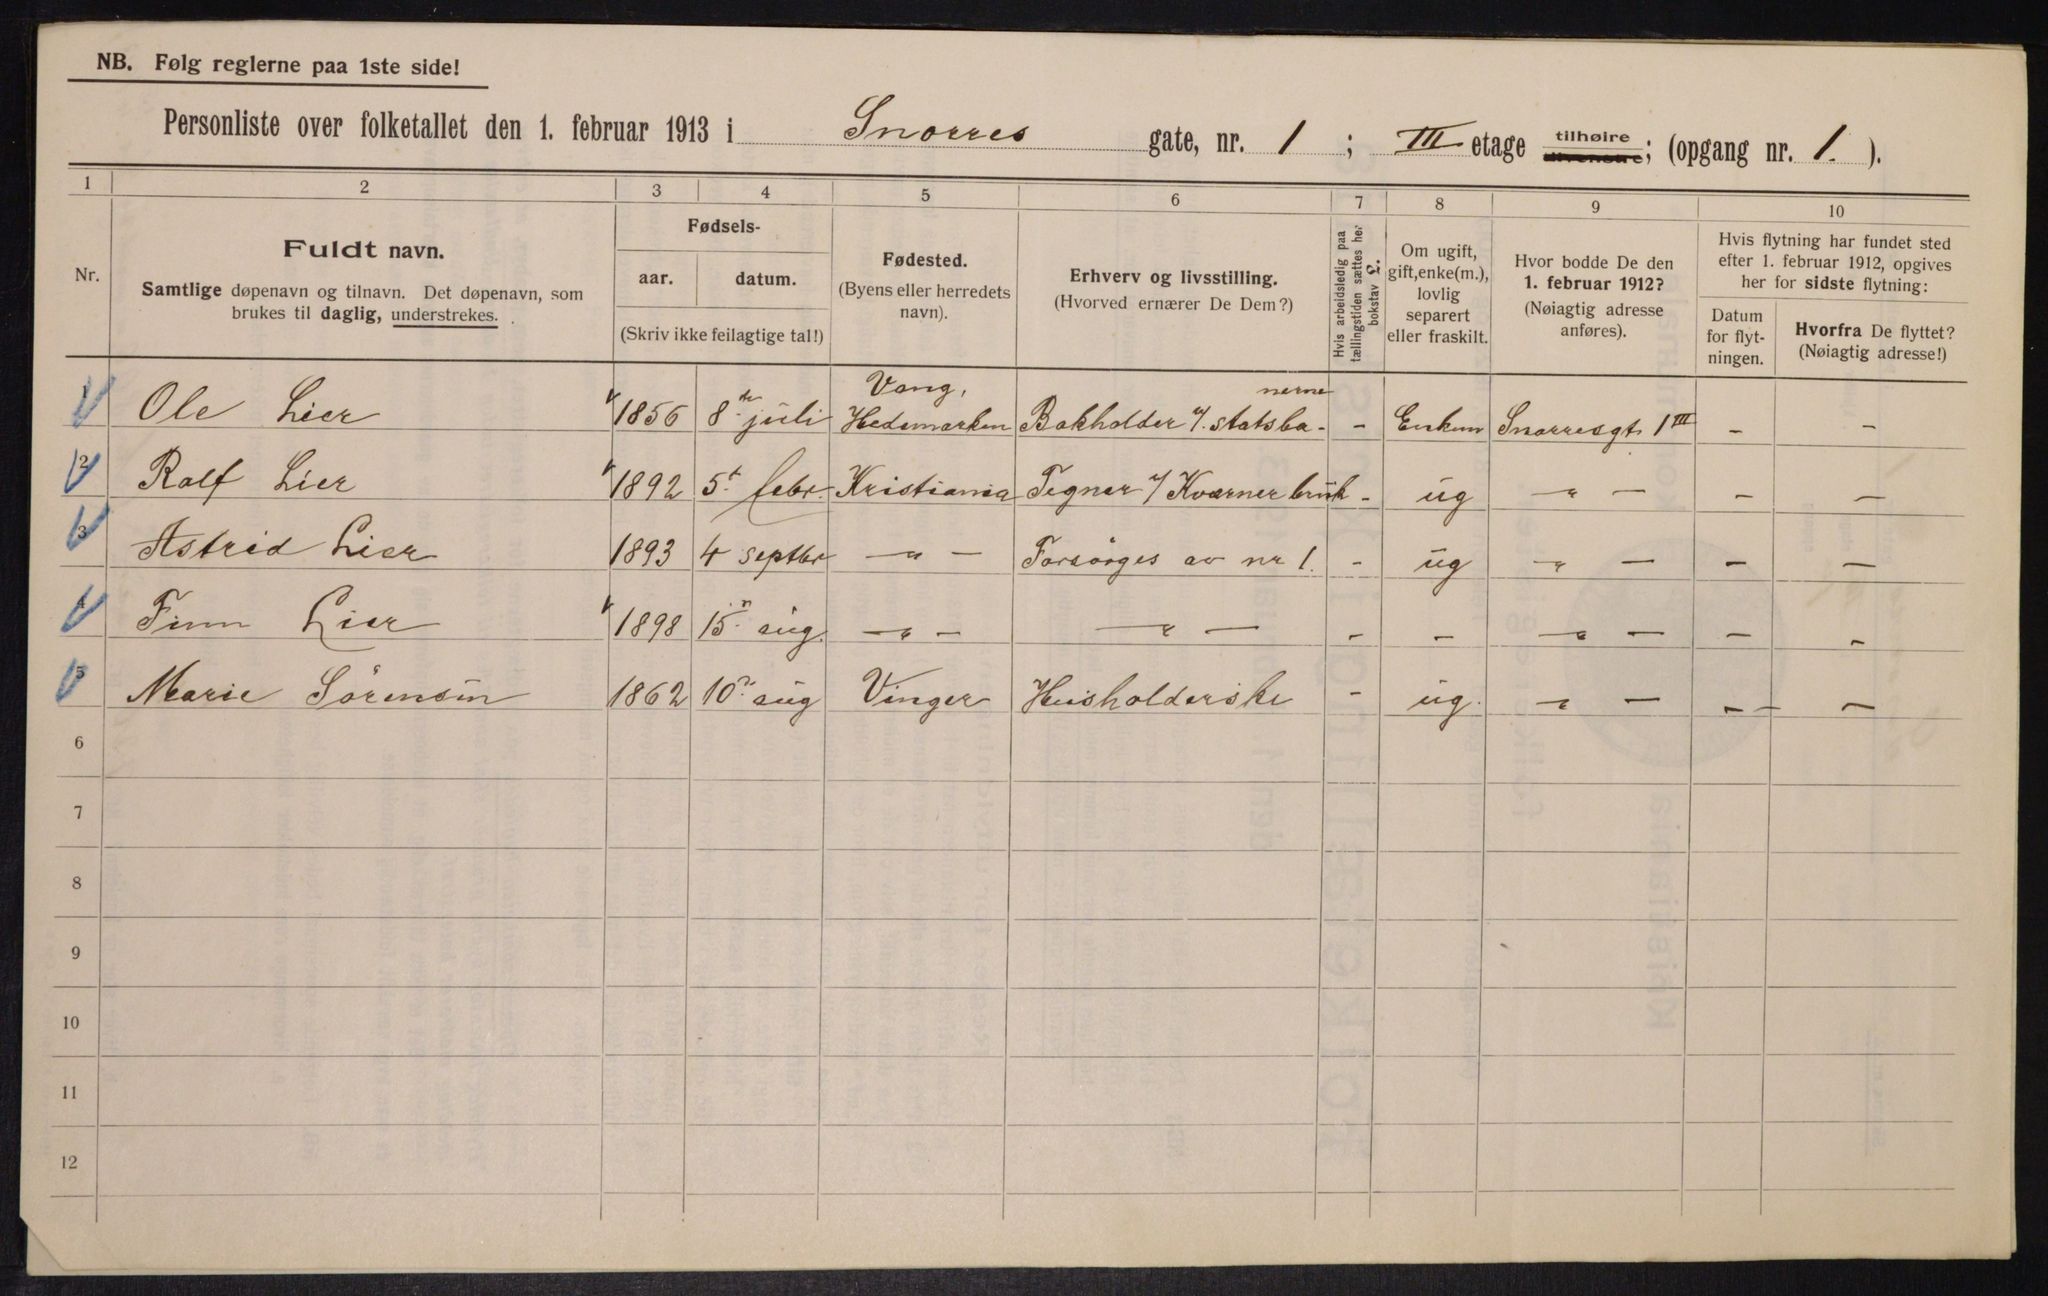 NB. Følg reglerne paa 1ste side!
Personliste over folketallet den 1. februar 1913 i Snorres gate, nr. 1 ; III etage tilhøire tilvenstre; (opgang nr. 1. ).
1 2 3 4 5 6 7 8 9 10
Nr.
Fuldt navn.
Samtlige døpenavn og tilnavn. Det døpenavn, som
brukes til daglig, understrekes.
Fødsels-
aar. datum.
(Skriv ikke feilagtige tal!)
Fødested.
(Byens eller herredets
navn).
Erhverv og livsstilling.
(Hvorved ernærer De Dem?)
Hvis arbeidsledig paa
tællingstiden sættes her
bokstav L.
Om ugift,
gift, enke(m.),
lovlig
separert
eller fraskilt.
Hvor bodde De den
1. februar 1912?
(Nøiagtig adresse
anføres).
Hvis flytning har fundet sted
efter 1. februar 1912, opgives
her for sidste flytning:
Datum
for flyt-
ningen.
Hvorfra De flyttet?
(Nøiagtig adresse!)
1 Ole Lier 1856 8de juli Vang, Hedemarken Bokholder v/. statsba- nerne - Enkem Snorresgt. 1 III - -
2 Rolf Lier 1892 5t febr. Kristiania Tegner v/ Kværner bruk - ug -"- - -
3 Astrid Lier 1893 4 septbr -"- Forsörges av nr 1. - ug -"- - -
4 Finn Lier 1898 15n aug. -"- -"- - - -"- - -
5 Marie Sörensen 1862 10n aug Vinger Husholderske - ug. -"- - -
6
7
8
9
10
11
12